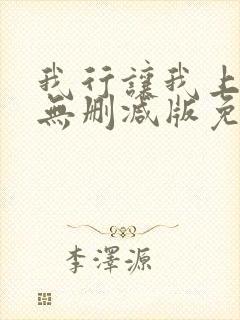 我行讓我上
無刪減版免
李澤源